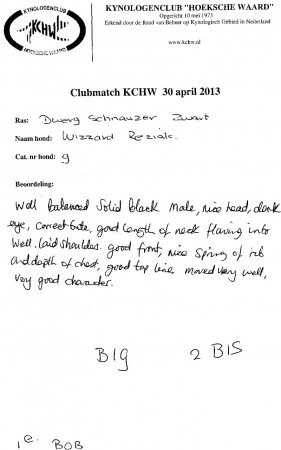 KYNOLOGENCLUB
KCHW
HOEKSCHE WAARD
KYNOLOGENCLUB "HOEKSCHE WAARD"
Opgericht 10 mei 1973
Erkend door de Raad van Beheer op Kynologisch Gebied in Nederland
www.kchw.nl
Clubmatch KCHW 30 april 2013
Ras: Dwerg Schnauzer Zwart
Naam hond: Wizzard Rezials.
Cat. nr hond: 9
Beoordeling:
Well balanced Solid black Male, nice head, dark
eye, correct bite, good length of neck flowing into
well laid shoulder. good front, nice spring of rib
and depth of chest, good top line moved very well,
very good character.
BIG 2 BIS
1e. BOB